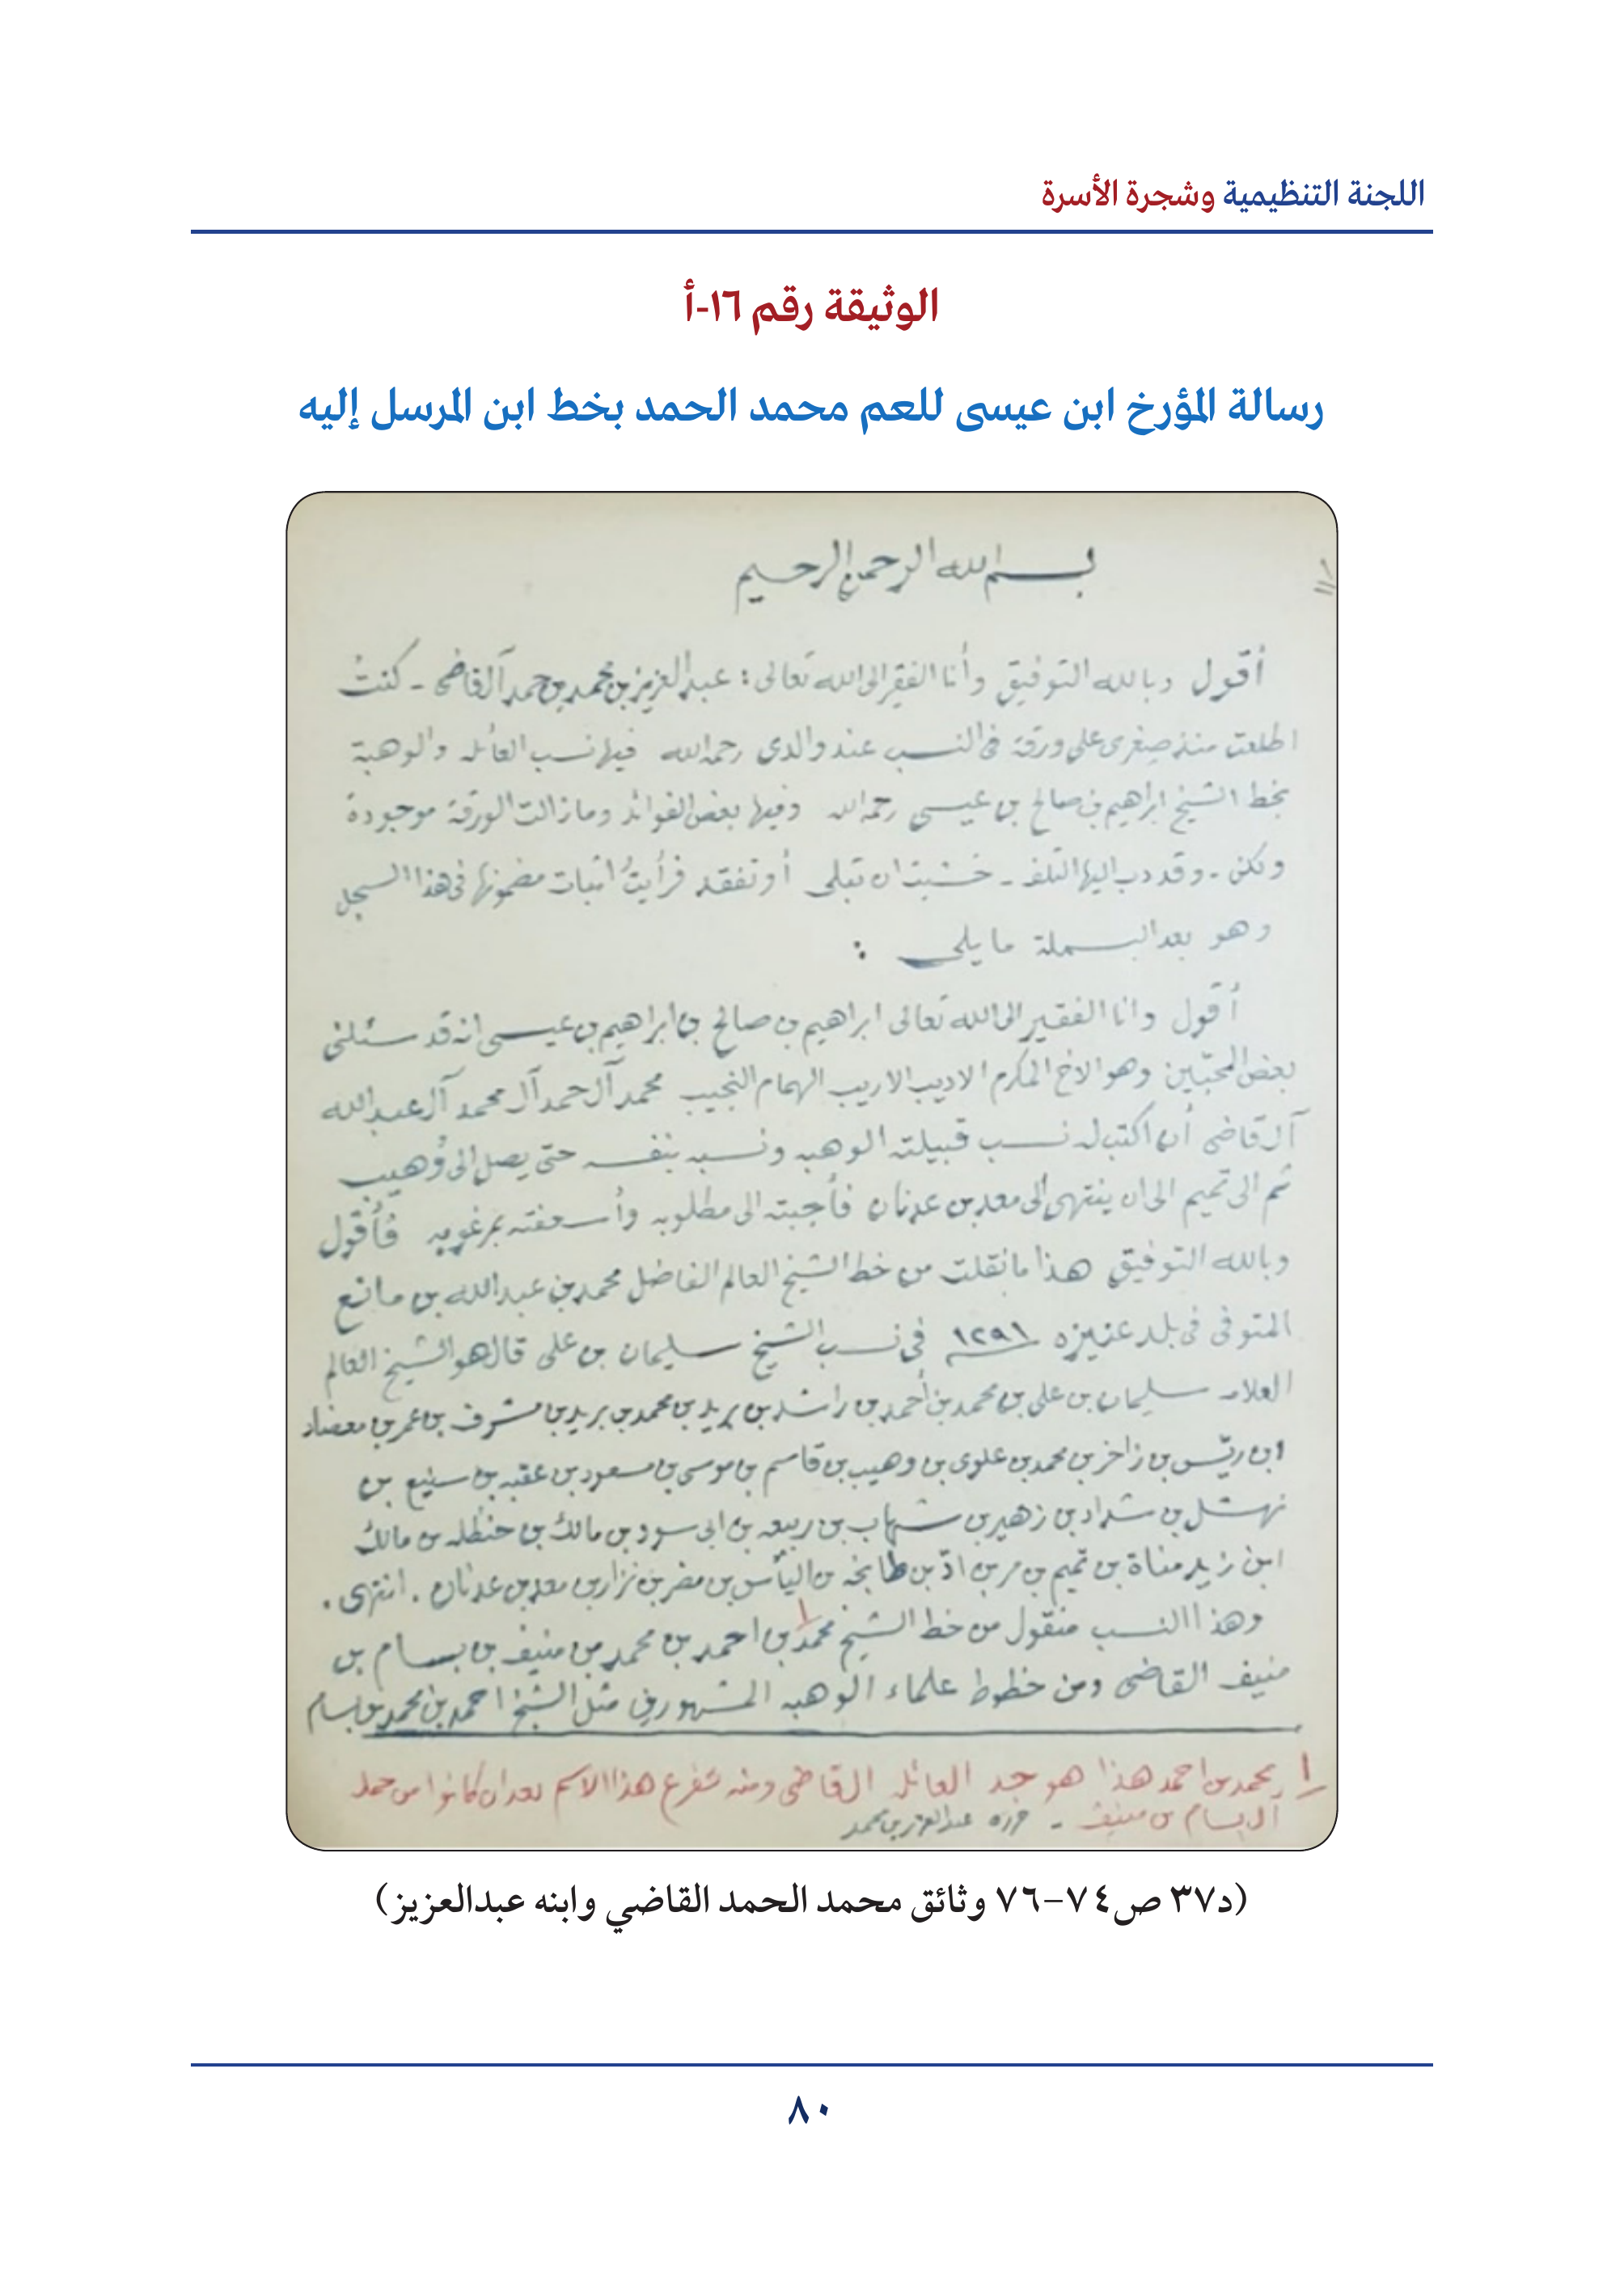 اللجنة التنظيمية وشجرة الأسرة
الوثيقة رقم ١٦-أ
رسالة المؤرخ ابن عيسى للعم محمد الحمد بخط ابن المرسل إليه
بسم الله الرحمن الرحيم
أقول وبالله التوفيق وأنا الفقير الى الله تعالى : عبدالعزيز بن محمد بن حمد آل قاضى - كنتُ
اطلعت منذ صغرى على ورقة فى النسب عند والدي رحمه الله فيها نسب العائله والوهبة
بخط الشيخ ابراهيم بن صالح بن عيسى رحمه الله وفيها بعض الفوائد ومازالت الورقة موجودة
ولكن - وقد دب اليها التلف - خشيت ان تبلى أو تفقد فرأيتُ اثبات مضمونها فى هذا السجل
وهو بعد البسملة مايلى :
أقول وانا الفقير الى الله تعالى ابراهيم بن صالح بن ابراهيم بن عيسى انه قد سئلنى
بعض المحبّين وهو الاخ المكرم الاديب الاريب الهمام النجيب محمد آل حمد آل محمد آل عبدالله
آل قاضى أن اكتب له نسب قبيلته الوهبه ونسبه بنفسه حتى يصل الى وُهيب
ثم الى تميم الى ان ينتهى الى معد بن عدنان فأجبته الى مطلوبه وأسعفته بمرغوبه فأقول
وبالله التوفيق هذا مانقلت من خط الشيخ العالم الفاضل محمد بن عبدالله بن مانع
المتوفى فى بلد عنيزه ١٢٩١ فى نسب الشيخ سليمان بن على قال هو الشيخ العالم
العلامه سليمان بن على بن محمد بن أحمد بن راشد بن بريد بن محمد بن بريد بن مشرف بن عمر بن معضاد
ابن ريّس بن زاخر بن محمد بن علوى بن وهيب بن قاسم بن موسى بن مسعود بن عقبه بن سنيع بن
نهشل بن شداد بن زهير بن شهاب بن ربيعه بن ابى سود بن مالك بن حنظله بن مالك
ابن زيد مناة بن تميم بن مر بن ادّ بن طابخه بن اليأس بن مضر بن نزار بن معد بن عدنان . انتهى .
وهذا النسب منقول من خط الشيخ محمد بن احمد بن محمد بن منيف بن بسام بن
منيف القاضى ومن خطوط علماء الوهبه المشهورين مثل الشيخ احمد بن محمد بن بسام
١ محمد بن احمد هذا هو جد العائله القاضى ومنه تفرع هذا الاسم بعد ان كانوا من حمله
آل بسام بن منيف - حرره عبدالعزيز بن محمد
(د٣٧ ص٧٤-٧٦ وثائق محمد الحمد القاضي وابنه عبدالعزيز)
٨٠